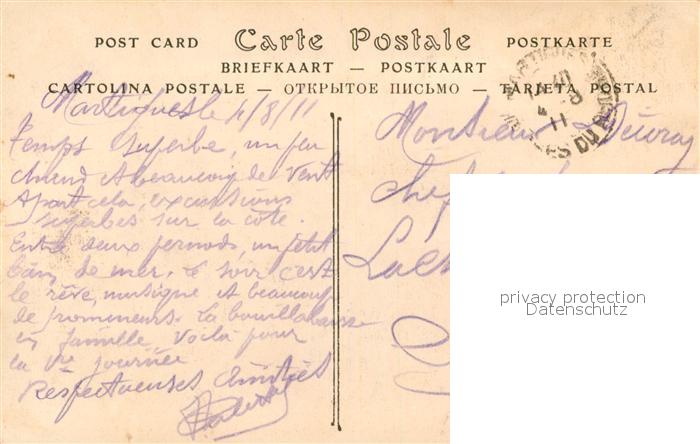 POST CARD Carte Postale POSTKARTE
BRIEFKAART — POSTKAART
CARTOLINA POSTALE — ОТКРЫТОЕ ПИСЬМО — TARJETA POSTAL
Martigues le 4/8/11
Temps superbe, un peu
chaud et beaucoup de vent
Apart cela, excursions
superbes sur la côte.
Entre deux pernods, un petit
bain de mer. Le soir c'est
le rêve, musique et beaucoup
de promeneurs. La bouillabaisse
en famille. Voilà pour
la 1re journée
Respectueuses Amitiés
Monsieur
Chef
privacy protection
Datenschutz
11